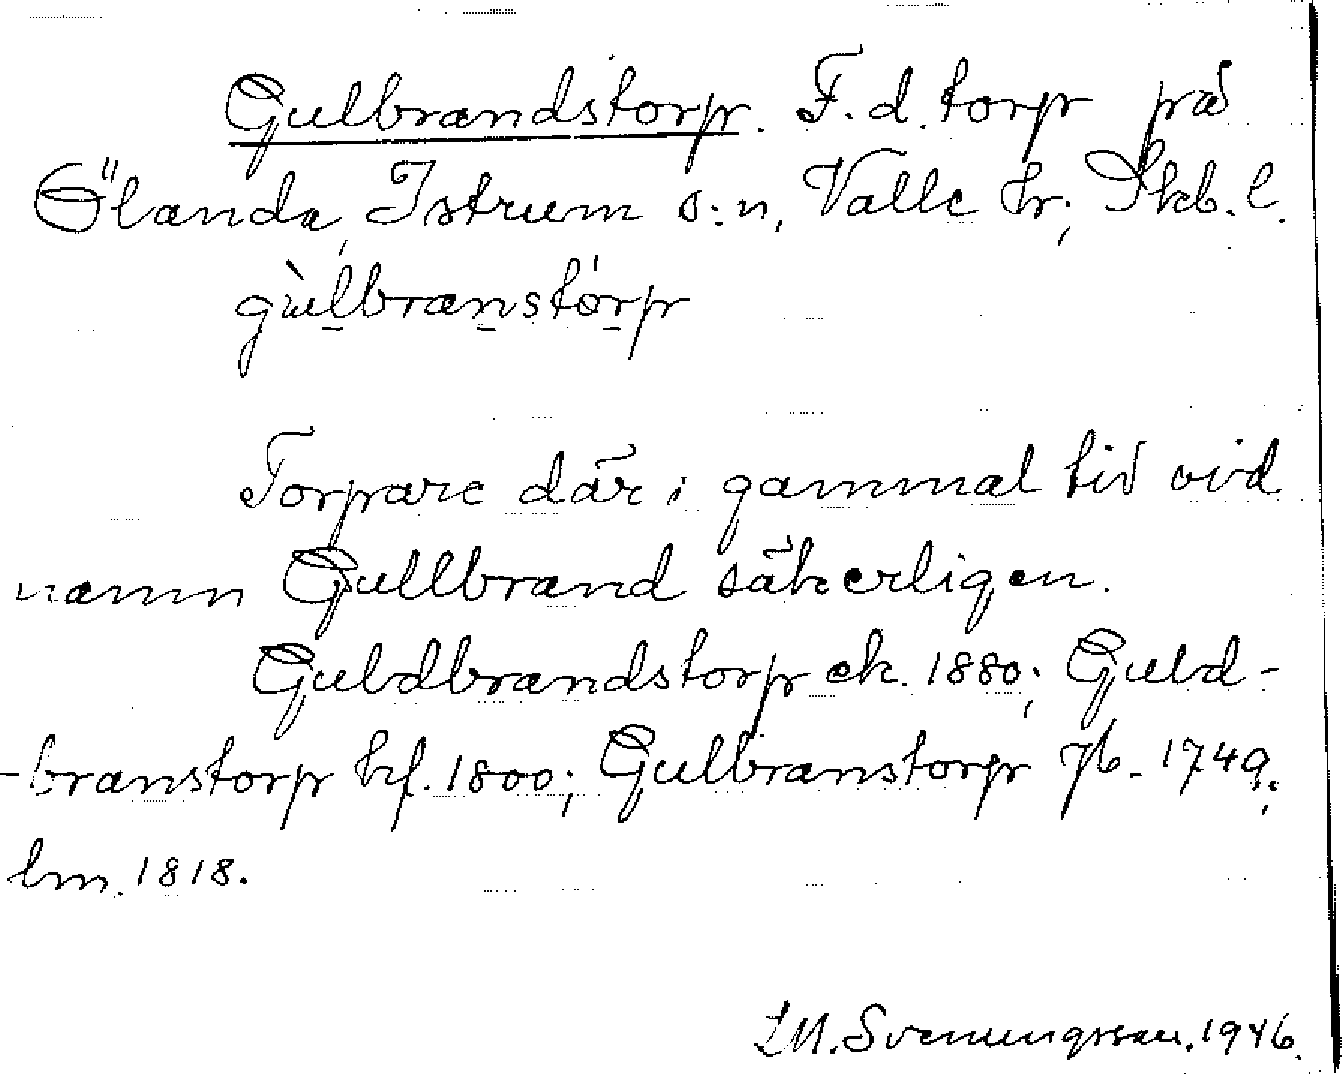 Gulbrandstorp. F.d. torp på
Ölanda, Istrum s:n, Valle hr; Skb. l.
gùlbranstórp
Torpare där i gammal tid vid
namn Gullbrand säkerligen.
Guldbrandstorp ek. 1880; Guld-
-branstorp hf. 1800; Gulbranstorp jb. 1749;
lm. 1818.
Svenungsson. 1946.